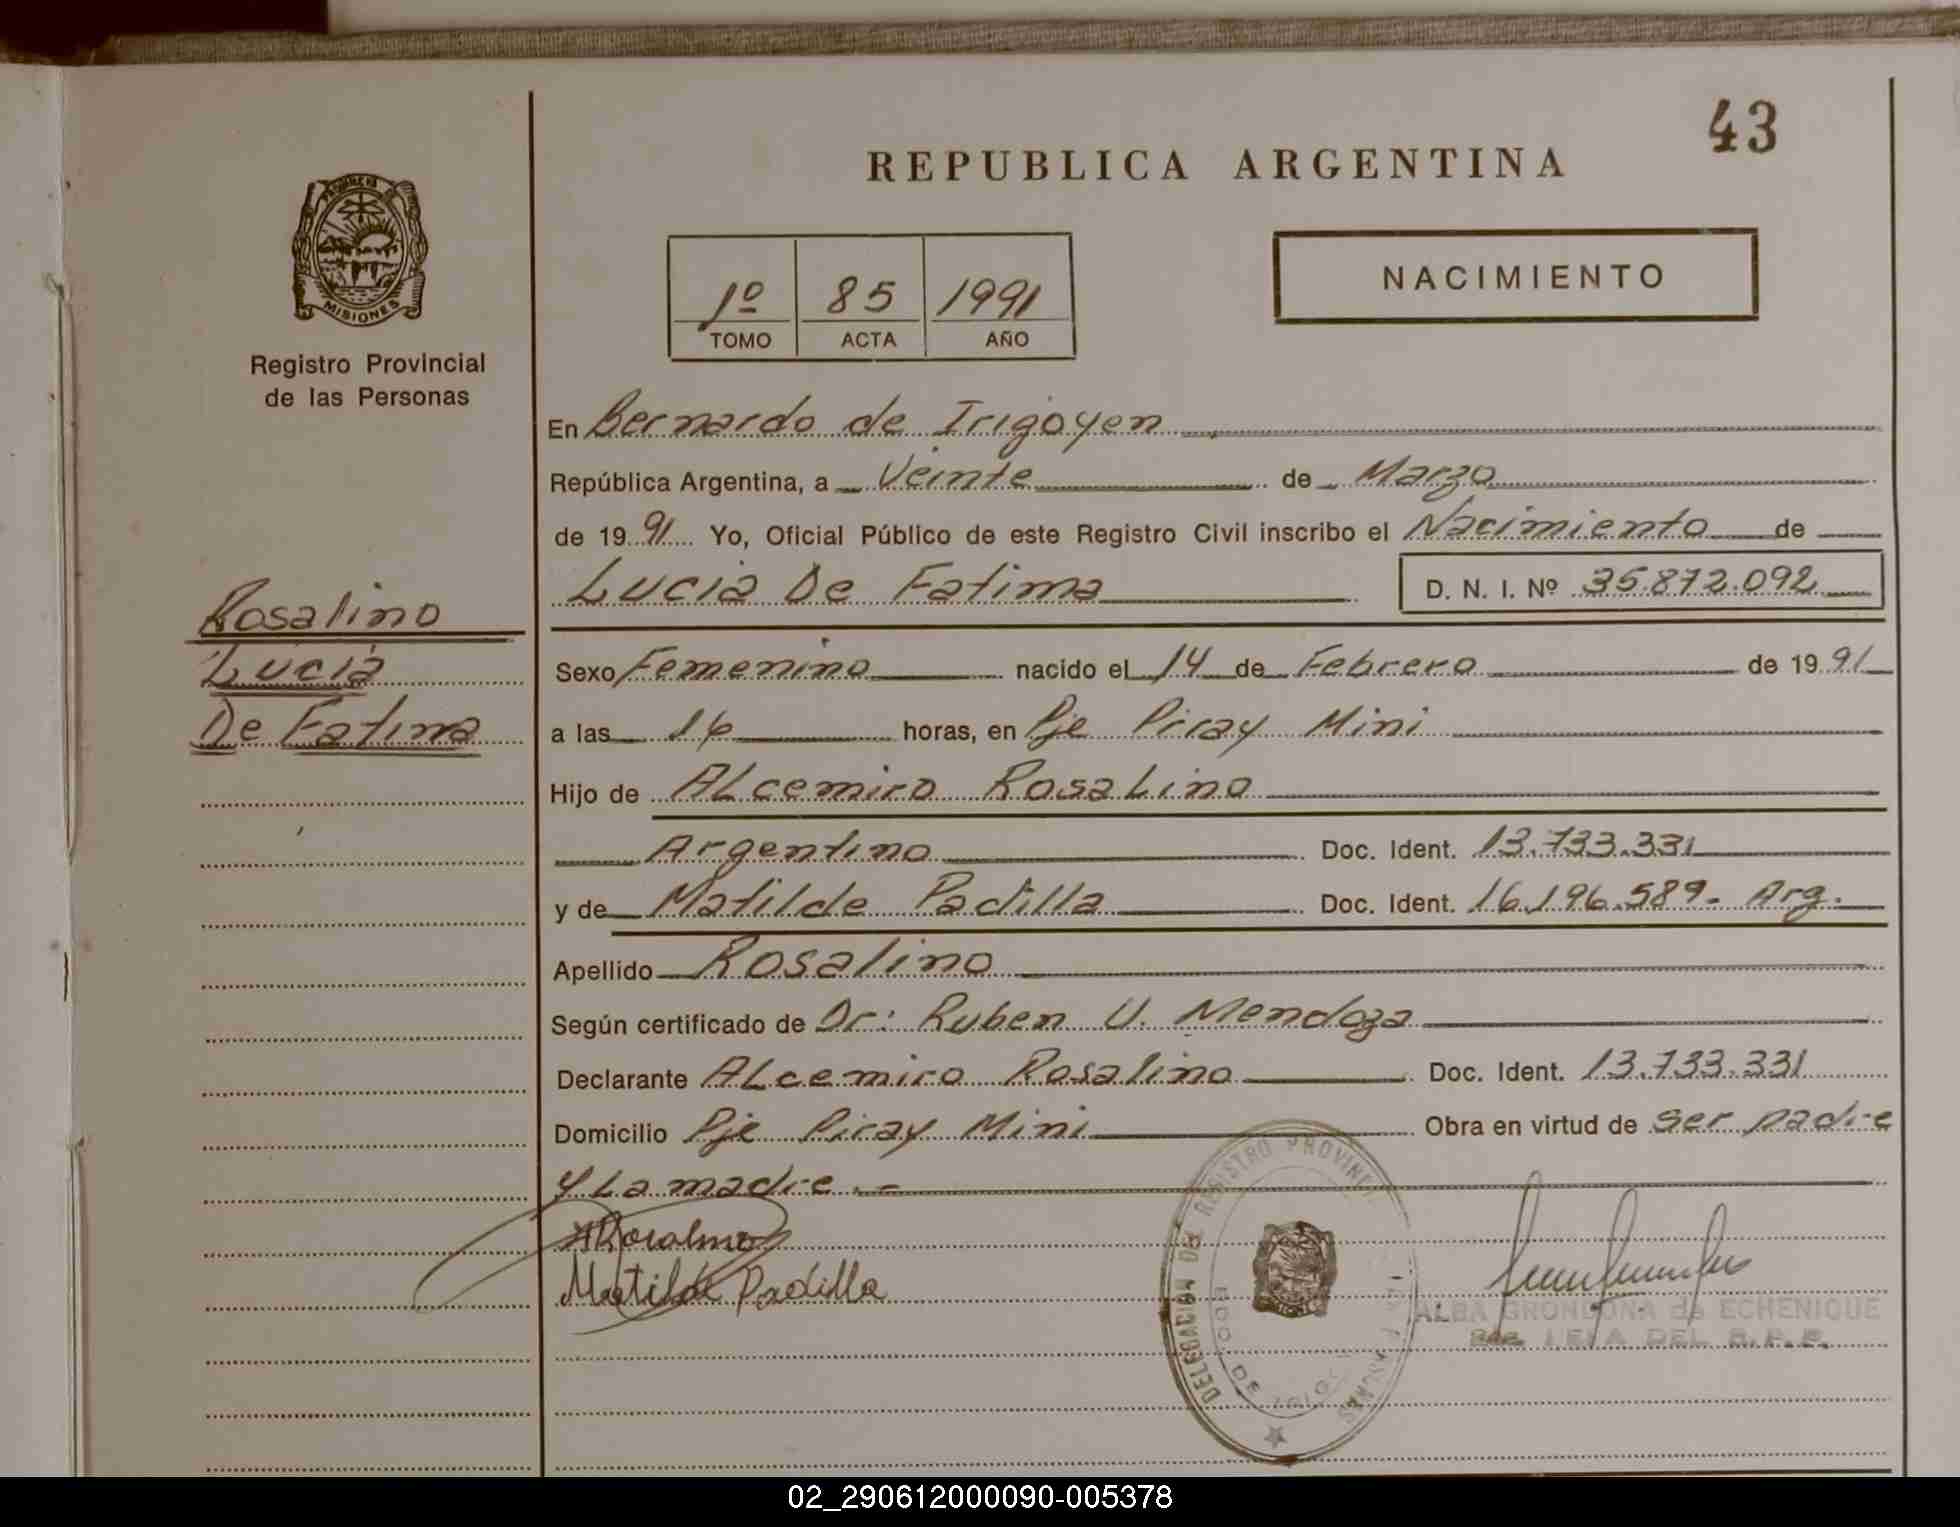 43
REPUBLICA ARGENTINA
PROVINCIA
MISIONES
Registro Provincial
de las Personas
1º 85 1991
TOMO ACTA AÑO
NACIMIENTO
En Bernardo de Irigoyen
República Argentina, a Veinte de Marzo
de 19 91 Yo, Oficial Público de este Registro Civil inscribo el Nacimiento de
Lucia De Fatima D. N. I. Nº 35.872.092
Rosalino
Lucia
De Fatima
Sexo Femenino nacido el 14 de Febrero de 19 91
a las 16 horas, en Pje Piray Mini
Hijo de ALcemiro RosaLino
Argentino Doc. Ident. 13.733.331
y de Matilde Padilla Doc. Ident. 16.196.589- Arg.
Apellido Rosalino
Según certificado de Dr: Ruben U. Mendoza
Declarante ALcemiro Rosalino Doc. Ident. 13.733.331
Domicilio Pje Piray Mini Obra en virtud de ser padre
y La madre.-
ARosalino
Matilde Padilla
DELEGACION DEL REGISTRO PROVINCIAL
ALBA GRONDONA de ECHENIQUE
DEL R.P.P.
02_290612000090-005378